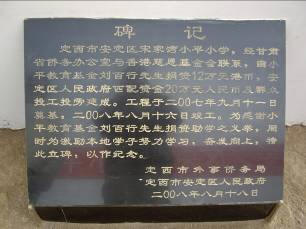 碑记
定西市安定区宋家沟小平小学,经甘肃
省侨务办公室与香港慈恩基金会联系,由小
平教育基金刘百行先生捐资12万元港币,安
定区人民政府匹配资金20万元人民币及群众
投工投劳建成。工程于二00七年九月十一日
奠基,二00八年八月十六日竣工。为感谢小
平教育基金刘百行先生捐资助学之义举,同
时为激励本地学子努力学习,奋发向上,特
此立碑,以作纪念。
定西市外事侨务局
定西市安定区人民政府
二00八年八月十八日